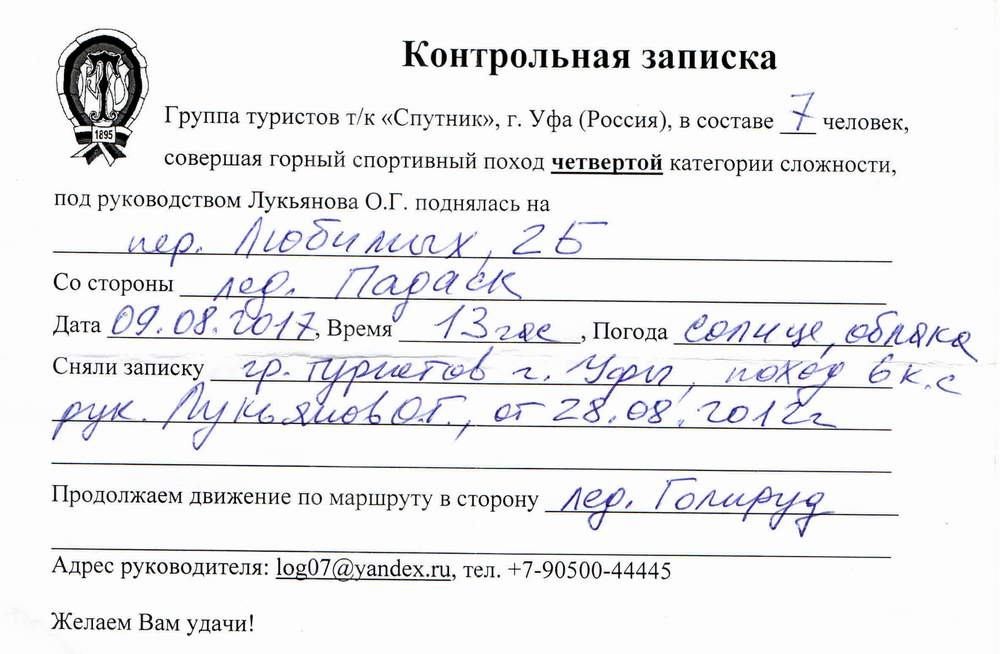 1895
Контрольная записка
Группа туристов т/к «Спутник», г. Уфа (Россия), в составе 7 человек,
совершая горный спортивный поход четвертой категории сложности,
под руководством Лукьянова О.Г. поднялась на
пер. Любимых, 2Б
Со стороны лед. Падаск
Дата 09.08.2017, Время 13 час, Погода солнце, облака
Сняли записку гр. туристов г. Уфы, поход 6 к.с
рук. Лукьянов О.Г., от 28.08.2012г
Продолжаем движение по маршруту в сторону лед. Голируд
Адрес руководителя: log07@yandex.ru, тел. +7-90500-44445
Желаем Вам удачи!